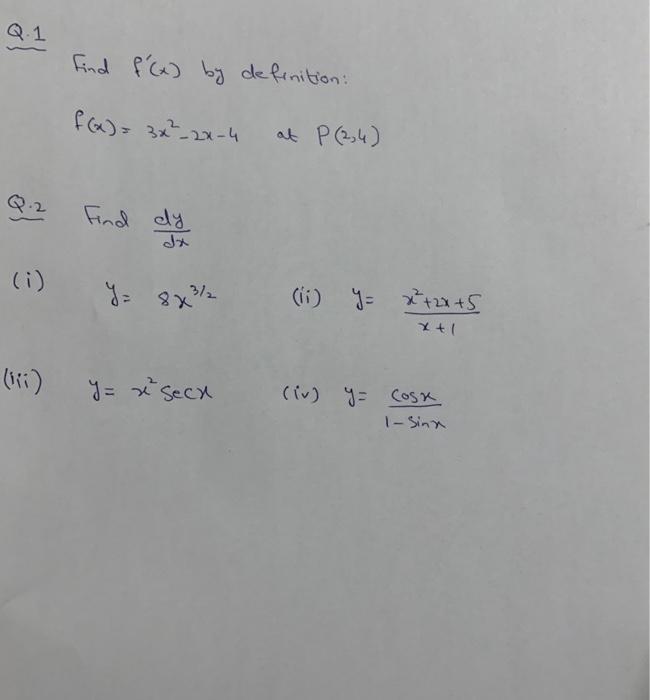 Q.1
Find f'(x) by definition:
f(x) = 3x²-2x-4 at P(2,4)
Q.2 Find dy/dx
(i) y= 8x^3/2 (ii) y= x²+2x+5/x+1
(iii) y= x² secx (iv) y= cosx/1-sinx